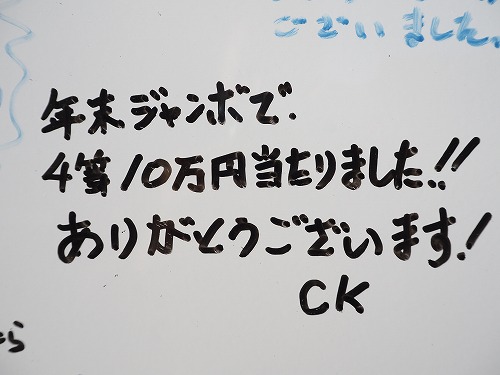 ございました。
年末ジャンボで.
4等10万円当たりました!!
ありがとうございます!
CK
ら